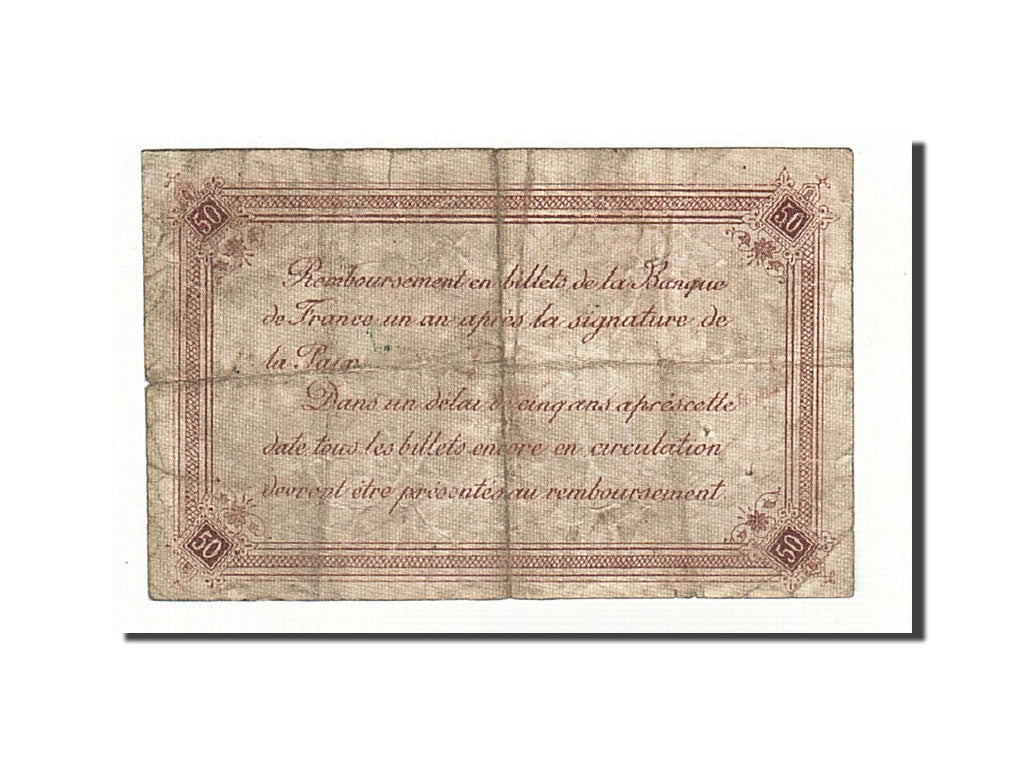 50 50
Remboursement en billets de la Banque
de France un an après la signature de
la Paix
Dans un délai de cinq ans aprés cette
date tous les billets encore en circulation
devront être présentés au remboursement
50 50